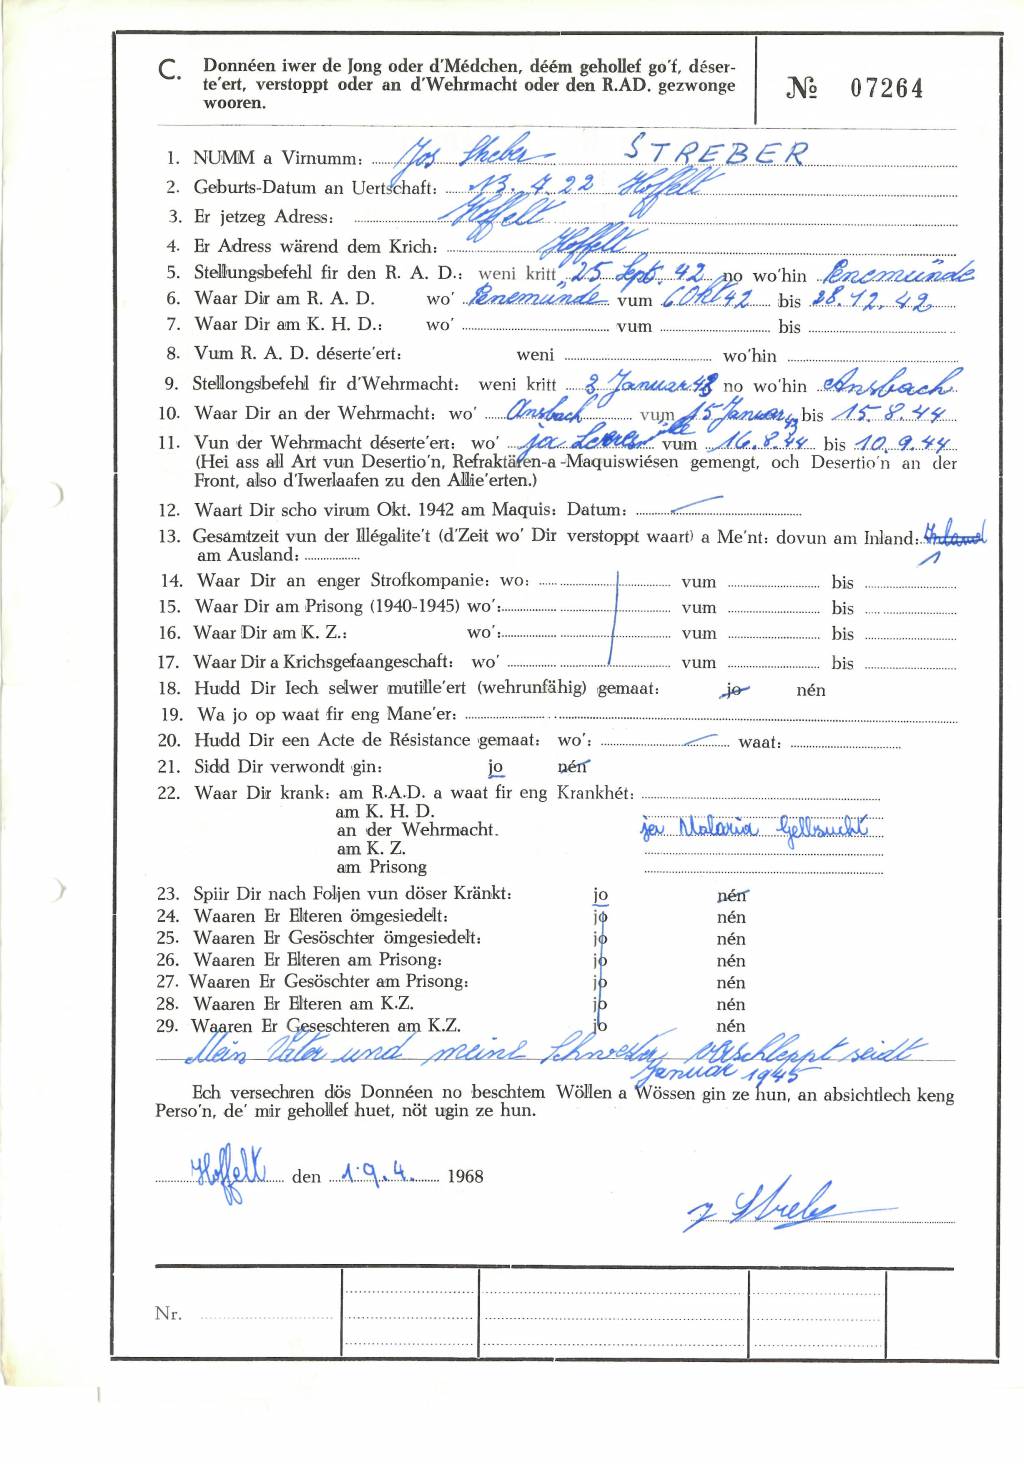 C. Donnéen iwer de Jong oder d'Médchen, déém gehollef go'f, déser-
te'ert, verstoppt oder an d'Wehrmacht oder den R.AD. gezwonge
wooren.
№ 07264
1. NUMM a Virnumm: Jos Streber STREBER
2. Geburts-Datum an Uertschaft: 13. 7. 22 Hoffelt
3. Er jetzeg Adress: Hoffelt
4. Er Adress wärend dem Krich: Hoffelt
5. Stellungsbefehl fir den R. A. D.: weni kritt 25 Sept. 42 no wo'hin Penemünde
6. Waar Dir am R. A. D. wo' Penemünde vum 6 Okt 42 bis 28. 12. 42
7. Waar Dir am K. H. D.: wo' vum bis
8. Vum R. A. D. déserte'ert: weni wo'hin
9. Stellongsbefehl fir d'Wehrmacht: weni kritt 3 Januar 43 no wo'hin Ansbach
10. Waar Dir an der Wehrmacht: wo' Ansbach vum 15 Januar 43 bis 15. 8. 44
11. Vun der Wehrmacht déserte'ert: wo' ja vum 16. 8. 44 bis 10. 9. 44
(Hei ass all Art vun Desertio'n, Refraktären-a -Maquiswiésen gemengt, och Desertio'n an der
Front, also d'Iwerlaafen zu den Allie'erten.)
12. Waart Dir scho virum Okt. 1942 am Maquis: Datum:
13. Gesamtzeit vun der Illégalite't (d'Zeit wo' Dir verstoppt waart) a Me'nt: dovun am Inland: Inland
am Ausland: 1
14. Waar Dir an enger Strofkompanie: wo: vum bis
15. Waar Dir am Prisong (1940-1945) wo': vum bis
16. Waar Dir am K. Z.: wo': vum bis
17. Waar Dir a Krichsgefaangeschaft: wo' vum bis
18. Hudd Dir Iech selwer mutille'ert (wehrunfähig) gemaat: jo nén
19. Wa jo op waat fir eng Mane'er:
20. Hudd Dir een Acte de Résistance gemaat: wo': waat:
21. Sidd Dir verwondt gin: jo nén
22. Waar Dir krank: am R.A.D. a waat fir eng Krankhét:
am K. H. D.
an der Wehrmacht. ja Malaria Gelbsucht
am K. Z.
am Prisong
23. Spiir Dir nach Foljen vun döser Kränkt: jo nén
24. Waaren Er Elteren ömgesiedelt: jo nén
25. Waaren Er Gesöschter ömgesiedelt: jo nén
26. Waaren Er Elteren am Prisong: jo nén
27. Waaren Er Gesöschter am Prisong: jo nén
28. Waaren Er Elteren am K.Z. jo nén
29. Waaren Er Geseschteren am K.Z. jo nén
Mein Vater und meine Schwester verschleppt seidt
Januar 1945
Ech versechren dös Donnéen no beschtem Wöllen a Wössen gin ze hun, an absichtlech keng
Perso'n, de' mir gehollef huet, nöt ugin ze hun.
Hoffelt den 19. 4. 1968
J Streber
Nr.